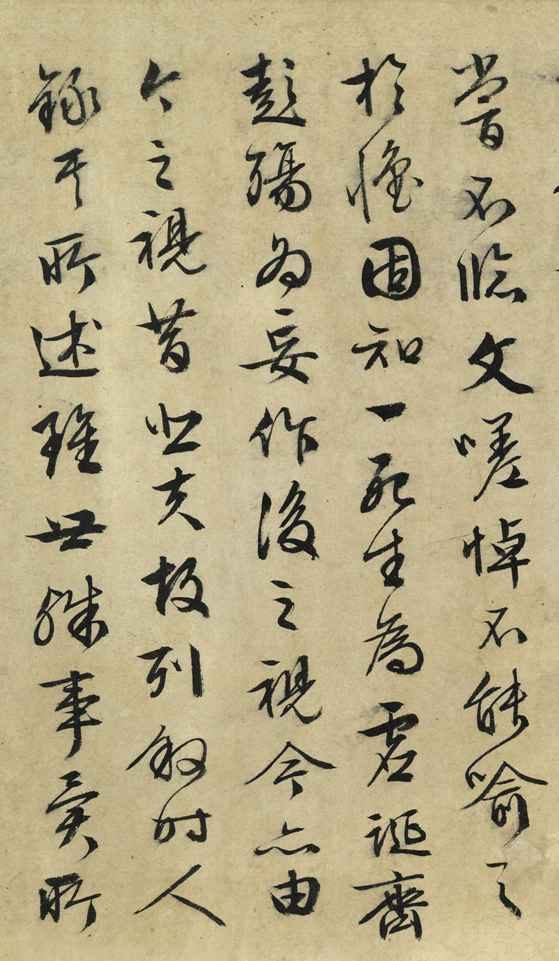 嘗不臨文嗟悼不能喻之
於懷固知一死生為虛誕齊
彭殤為妄作後之視今亦由
今之視昔悲夫故列叙时人
録其所述雖世殊事異所